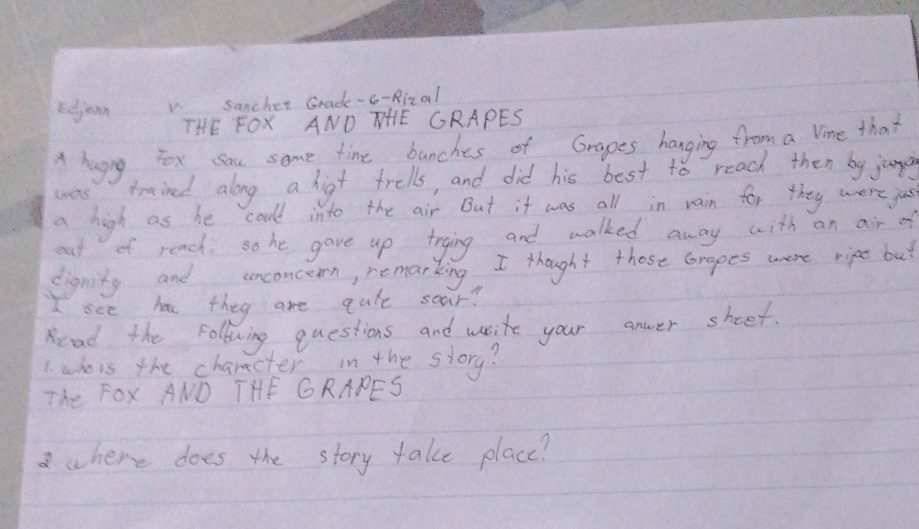 Edjenn V. Sanchez Grade-6-Rizal
THE FOX AND THE GRAPES
A hugng Fox Sau some tine bunches of Grapes hanging from a Vine that
was trained along a higt trells, and did his best to reach then by
a high as he could into the air But it was all in rain for they were just
out of reach: so he gave up trging and walked away with an air of
dignity and unconcern, remarking I thought those Grapes were ripe but
I see hou they are qute soar."
Read the Follwing questions and write your anwer sheet.
1. who is the character in the story?
The FOX AND THE GRAPES
2 where does the story take place?